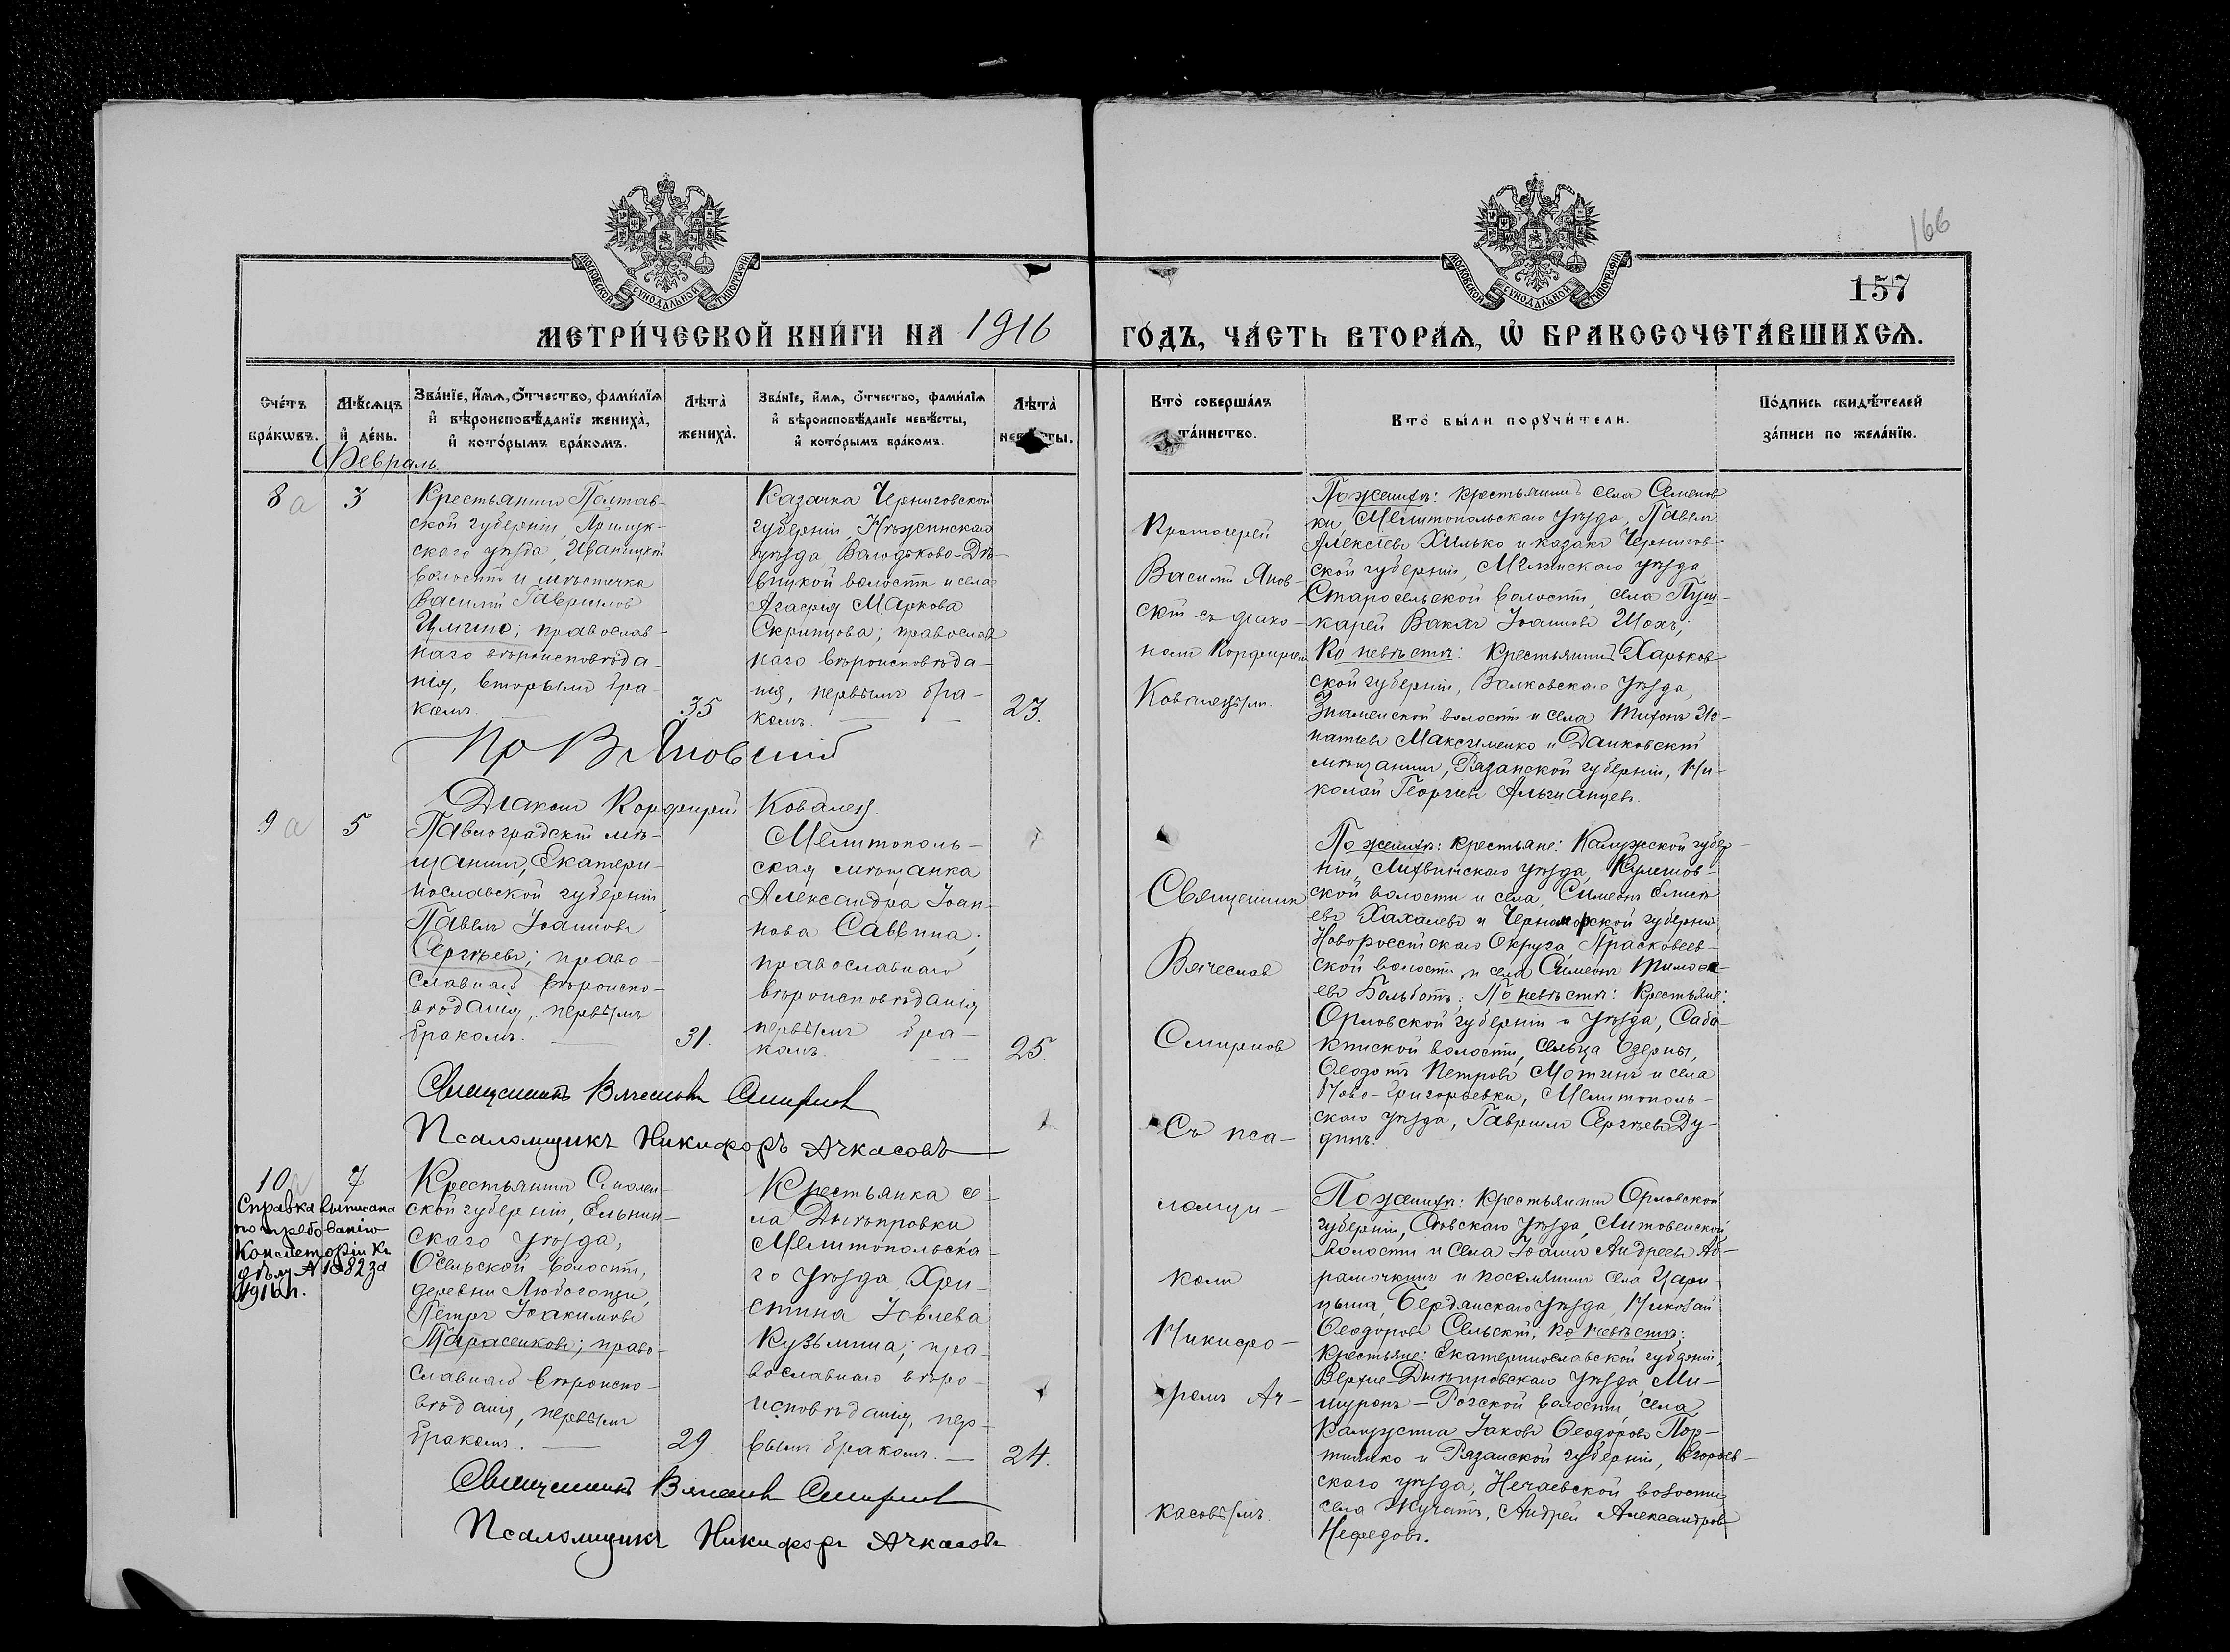 166
157
МОСКОВСКОЙ СѴНОДАЛЬНОЙ ТИПОГРАФІИ
МОСКОВСКОЙ СѴНОДАЛЬНОЙ ТИПОГРАФІИ
МЕТРИ́ЧЕСКОЙ КНИ́ГИ НА 1916 ГО́ДЪ, ЧА́СТЬ ВТОРА́Ѧ, Ѽ БРАКОСОЧЕТА́ВШИХСѦ.
Сче́тъ
бра́кωвъ.
Мѣ́сѧцъ
и҆ де́нь.
Зва́нїе, и҆́мѧ, о҆́тчество, фами́лїѧ
и҆ вѣроисповѣ́данїе жениха̀,
и҆ кото́рымъ бра́комъ.
Лѣ́та̀
жениха̀.
Зва́нїе, и҆́мѧ, о҆́тчество, фами́лїѧ
и҆ вѣроисповѣ́данїе невѣ́сты,
и҆ кото́рымъ бра́комъ.
Лѣ́та̀
невѣ́сты.
Кто̀ соверша́лъ
та́инство.
Кто̀ бы́ли порꙋчи́тели.
По́дпись свидѣ́телей
за́писи по жела́нїю.
Февраль.
8 а
3
Крестьянинъ Полтав-
ской губерніи, Прилук-
скаго уѣзда, Иваницкой
волости и мѣстечка
Василій Гавріиловъ
православ-
наго вѣроисповѣда-
нія, вторымъ бра-
комъ.
35
Казачка Черниговской
губерніи, Нѣжинскаго
уѣзда, Володьково-Дѣ-
вицкой волости и села
Агафія Маркова
Скрипцова; православ
наго вѣроисповѣда-
нія, первымъ бра-
комъ.
23.
Протоіерей
Василій Янов-
скій съ діако-
номъ Корфиріемъ
Ковалецымъ.
По женихѣ: крестьянинъ села Семенов
ки Мелитопольскаго уѣзда, Павелъ
Алексіевъ Хилько и казакъ Чернигов-
ской губерніи, Мглинскаго уѣзда
Старосельской волости, села Пуш-
карей Вакхъ Іоанновъ Шохъ;
По невѣстѣ: крестьянинъ Харьков-
ской губерніи, Валковскаго уѣзда,
Знаменской волости и села Тихонъ Иг-
натіевъ Максименко и Данковскій
мѣщанинъ, Рязанской губерніи, Ни-
колай Георгіевъ
Пр В Яновскій
Діаконъ Корфирій Ковалец
9 а
5
Павлоградскій мѣ-
щанинъ, Екатери-
нославской губерніи,
Павелъ Іоанновъ
Сергѣевъ; право-
славнаго вѣроиспо-
вѣданія, первымъ
бракомъ.
31.
Мелитополь-
ская мѣщанка
Александра Іоан-
нова Саввина;
православнаго
вѣроисповѣданія
первымъ бра-
комъ.
25.
Священникъ
Вячеслав
Смирнов
Съ пса-
ломщи-
комъ
Никифо-
ромъ Ач-
касовымъ.
По женихѣ: крестьяне: Калужской губер-
ніи, Лихвинскаго уѣзда, Кулешов-
ской волости и села, Симеонъ
евъ Хахалевъ и Черноморской губерніи,
Новороссійскаго Округа, Прасковеев-
ской волости и села Симеонъ Тимофе-
евъ Больботъ; По невѣстѣ: крестьяне:
Орловской губерніи и уѣзда, Саба-
кинской волости, сельца Озерны,
Ѳеодотъ Петровъ Мотинъ и села
Ново-Григорьевки, Мелитополь-
скаго уѣзда, Гавріилъ Сергѣевъ Ду-
динъ.
Священникъ Вячеславъ Смирнов
Псаломщикъ Никифоръ Ачкасовъ
10 а
7
Справка выписана
по требованію
Консисторіи къ
дѣлу № 1082 за
1916 г.
Крестьянинъ Смолен-
ской губерніи, Ельнин-
скаго уѣзда,
Осельской волости,
деревни
Петръ Іоакимовъ
Тарасенковъ; право-
славнаго вѣроиспо-
вѣданія, первымъ
бракомъ.
29
Крестьянка се-
ла Днѣпровки
Мелитопольска-
го уѣзда, Хри-
стина Іовлева
Кузьмина; пра-
вославнаго вѣро-
исповѣданія, пер-
вымъ бракомъ.
24.
По женихѣ: крестьянинъ Орловской
губерніи, Сѣвскаго уѣзда, Литовенской
волости и села Іоаннъ Андреевъ Аб-
рамочкинъ и поселянинъ села Цари-
цына, Бердянскаго уѣзда, Николай
Ѳеодоровъ Сельскій. По невѣстѣ:
крестьяне: Екатеринославской губерніи,
Верхне-Днѣпровскаго уѣзда, Ми-
шуринъ-Рогской волости, села
Калужина Іаковъ Ѳеодоровъ Пор-
тянко и Рязанской губерніи, Егорьев-
скаго уѣзда, Нечаевской волости
села Жучатъ, Андрей Александровъ
Нефедовъ.
Священникъ Вячеславъ Смирнов
Псаломщикъ Никифоръ Ачкасовъ